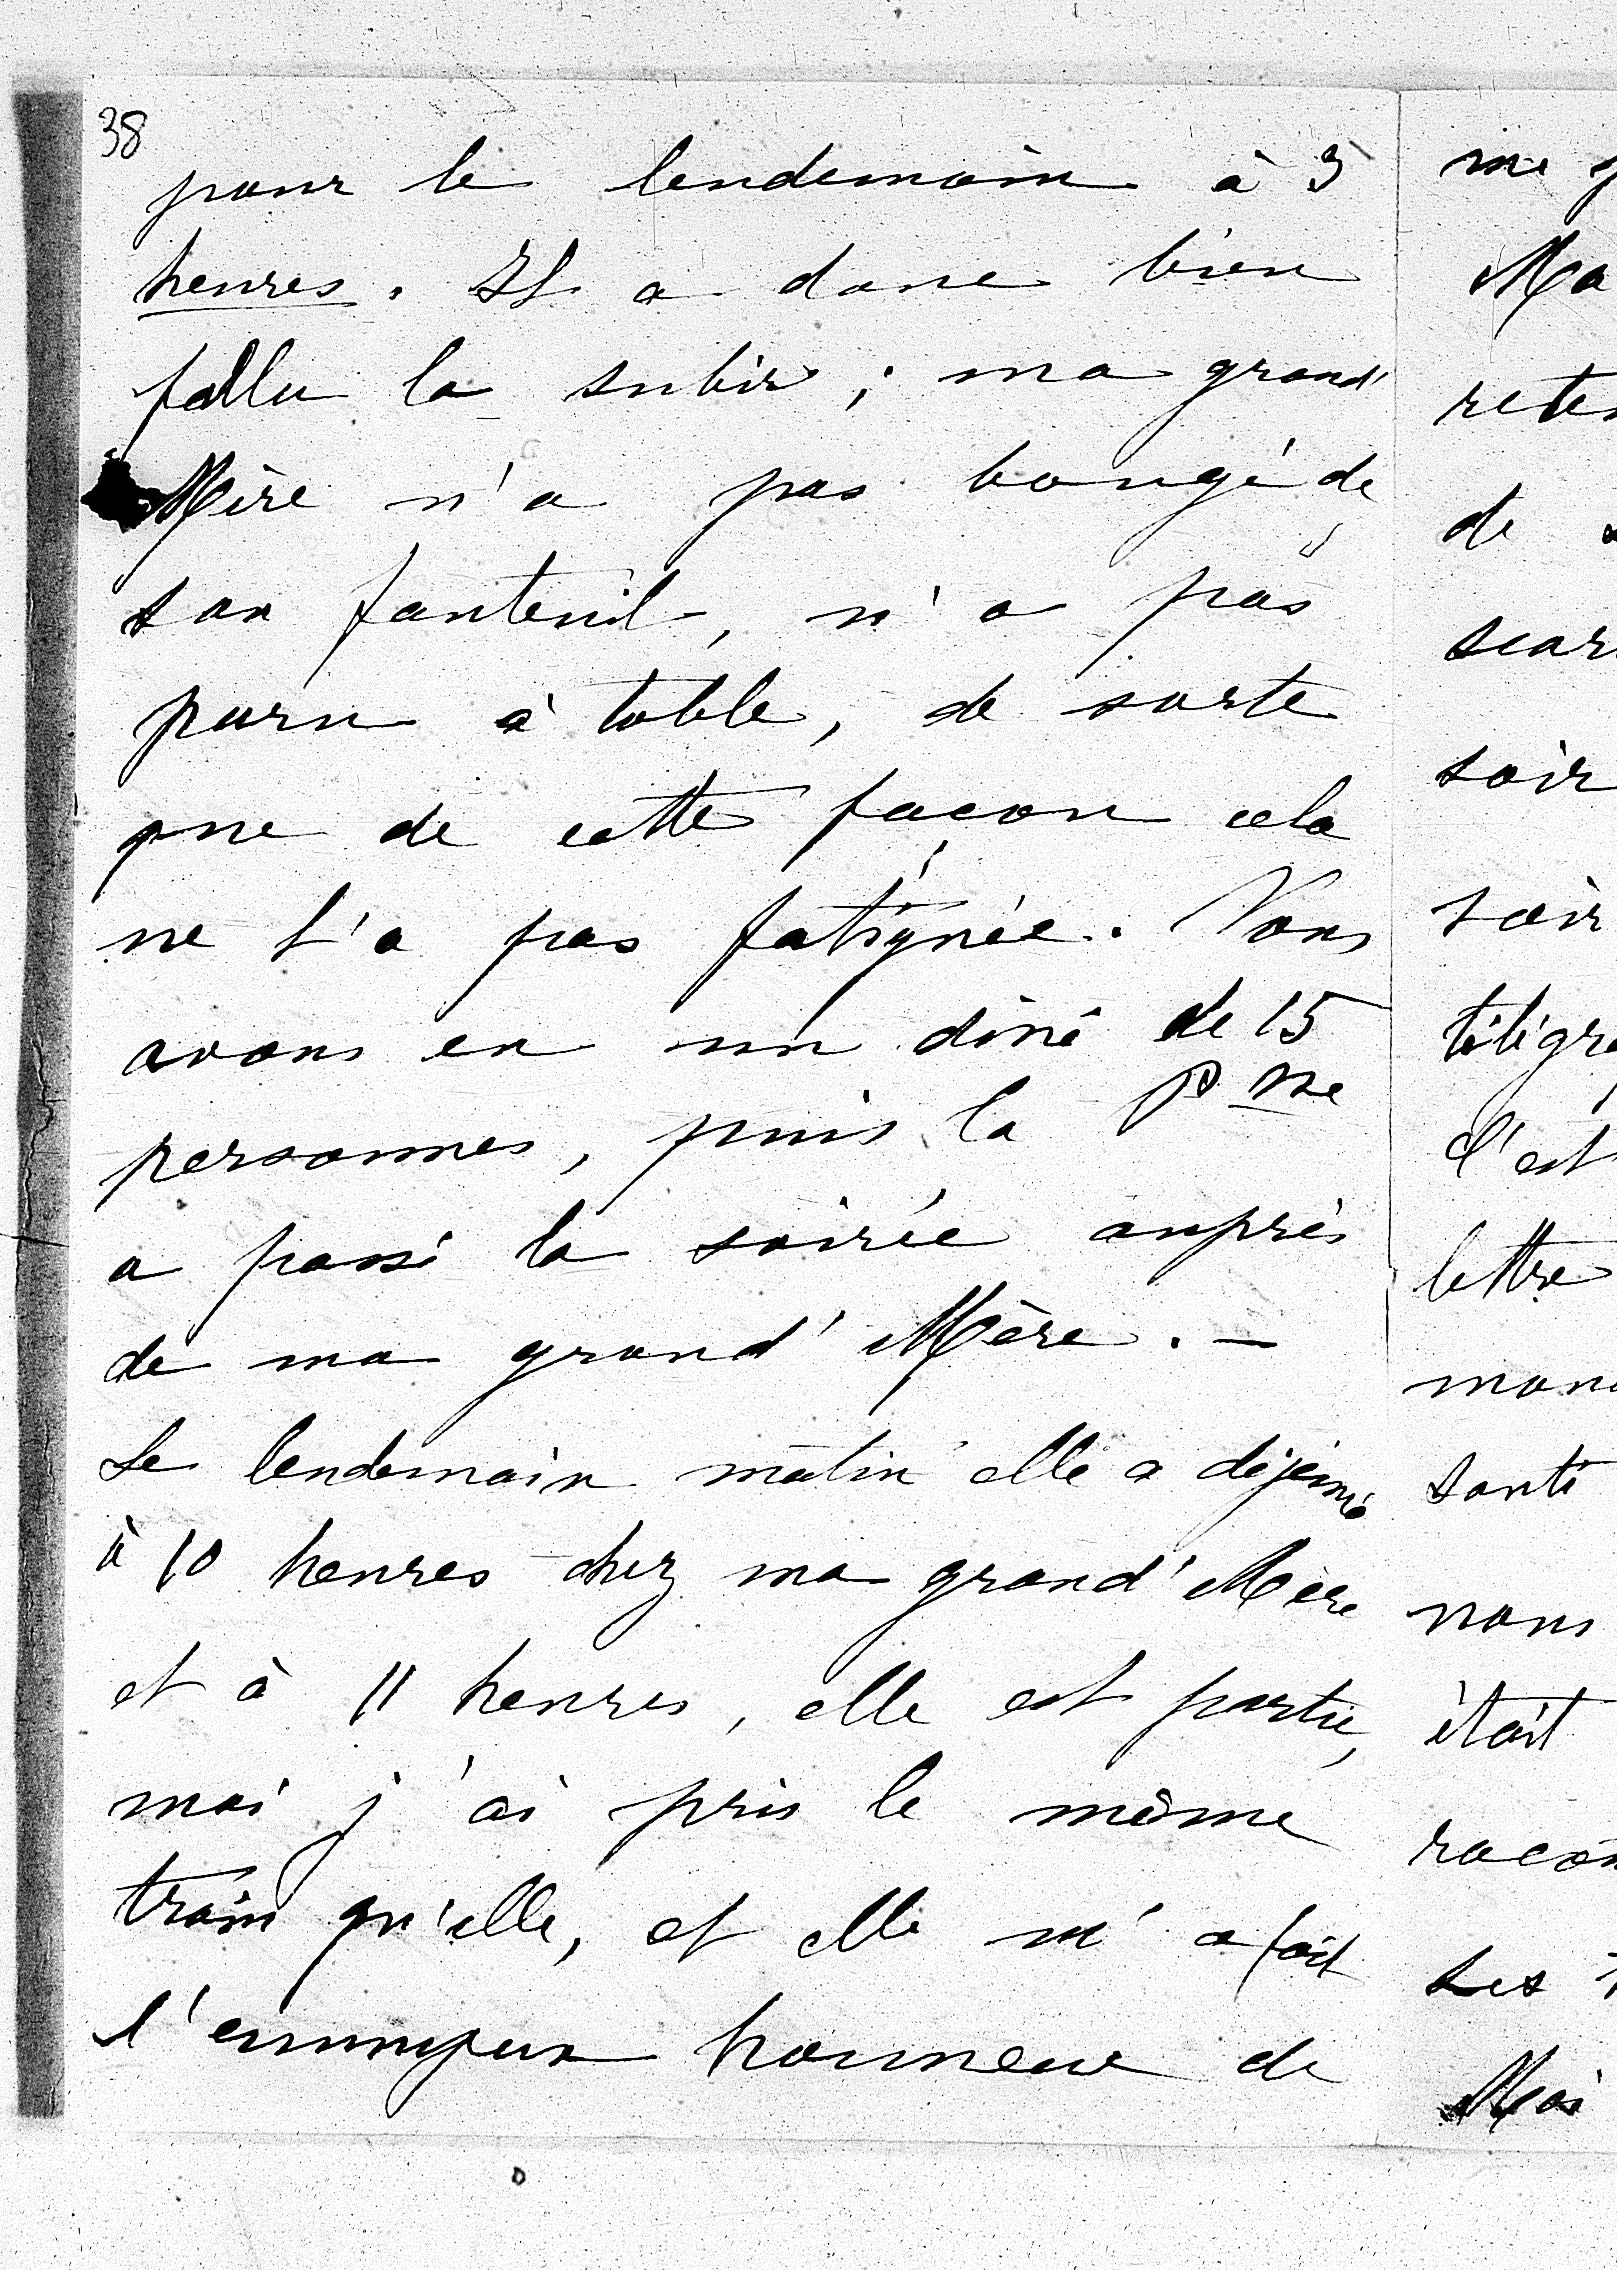 38
pour le lendemain à 3
heures. Il a donc bien
fallu la subir ; ma grand'
Mère n'a pas bougé de
son fauteuil, n'a pas
paru à table, de sorte
que de cette façon cela
ne l'a pas fatiguée. Nous
avons eu un dîné de 15
personnes, puis la Psse
a passé la soirée auprès
de ma grand' Mère. —
Le lendemain matin elle a déjeuné
à 10 heures chez ma grand' Mère
et à 11 heures, elle est partie,
moi j'ai pris le même
train qu'elle, et elle m'a fait
l'ennuyeux honneur de
me
Ma
rete
de
scar
soir
soir
télégra
C'est
lettre
mon
santé
nous
était
racon
ses
Moi